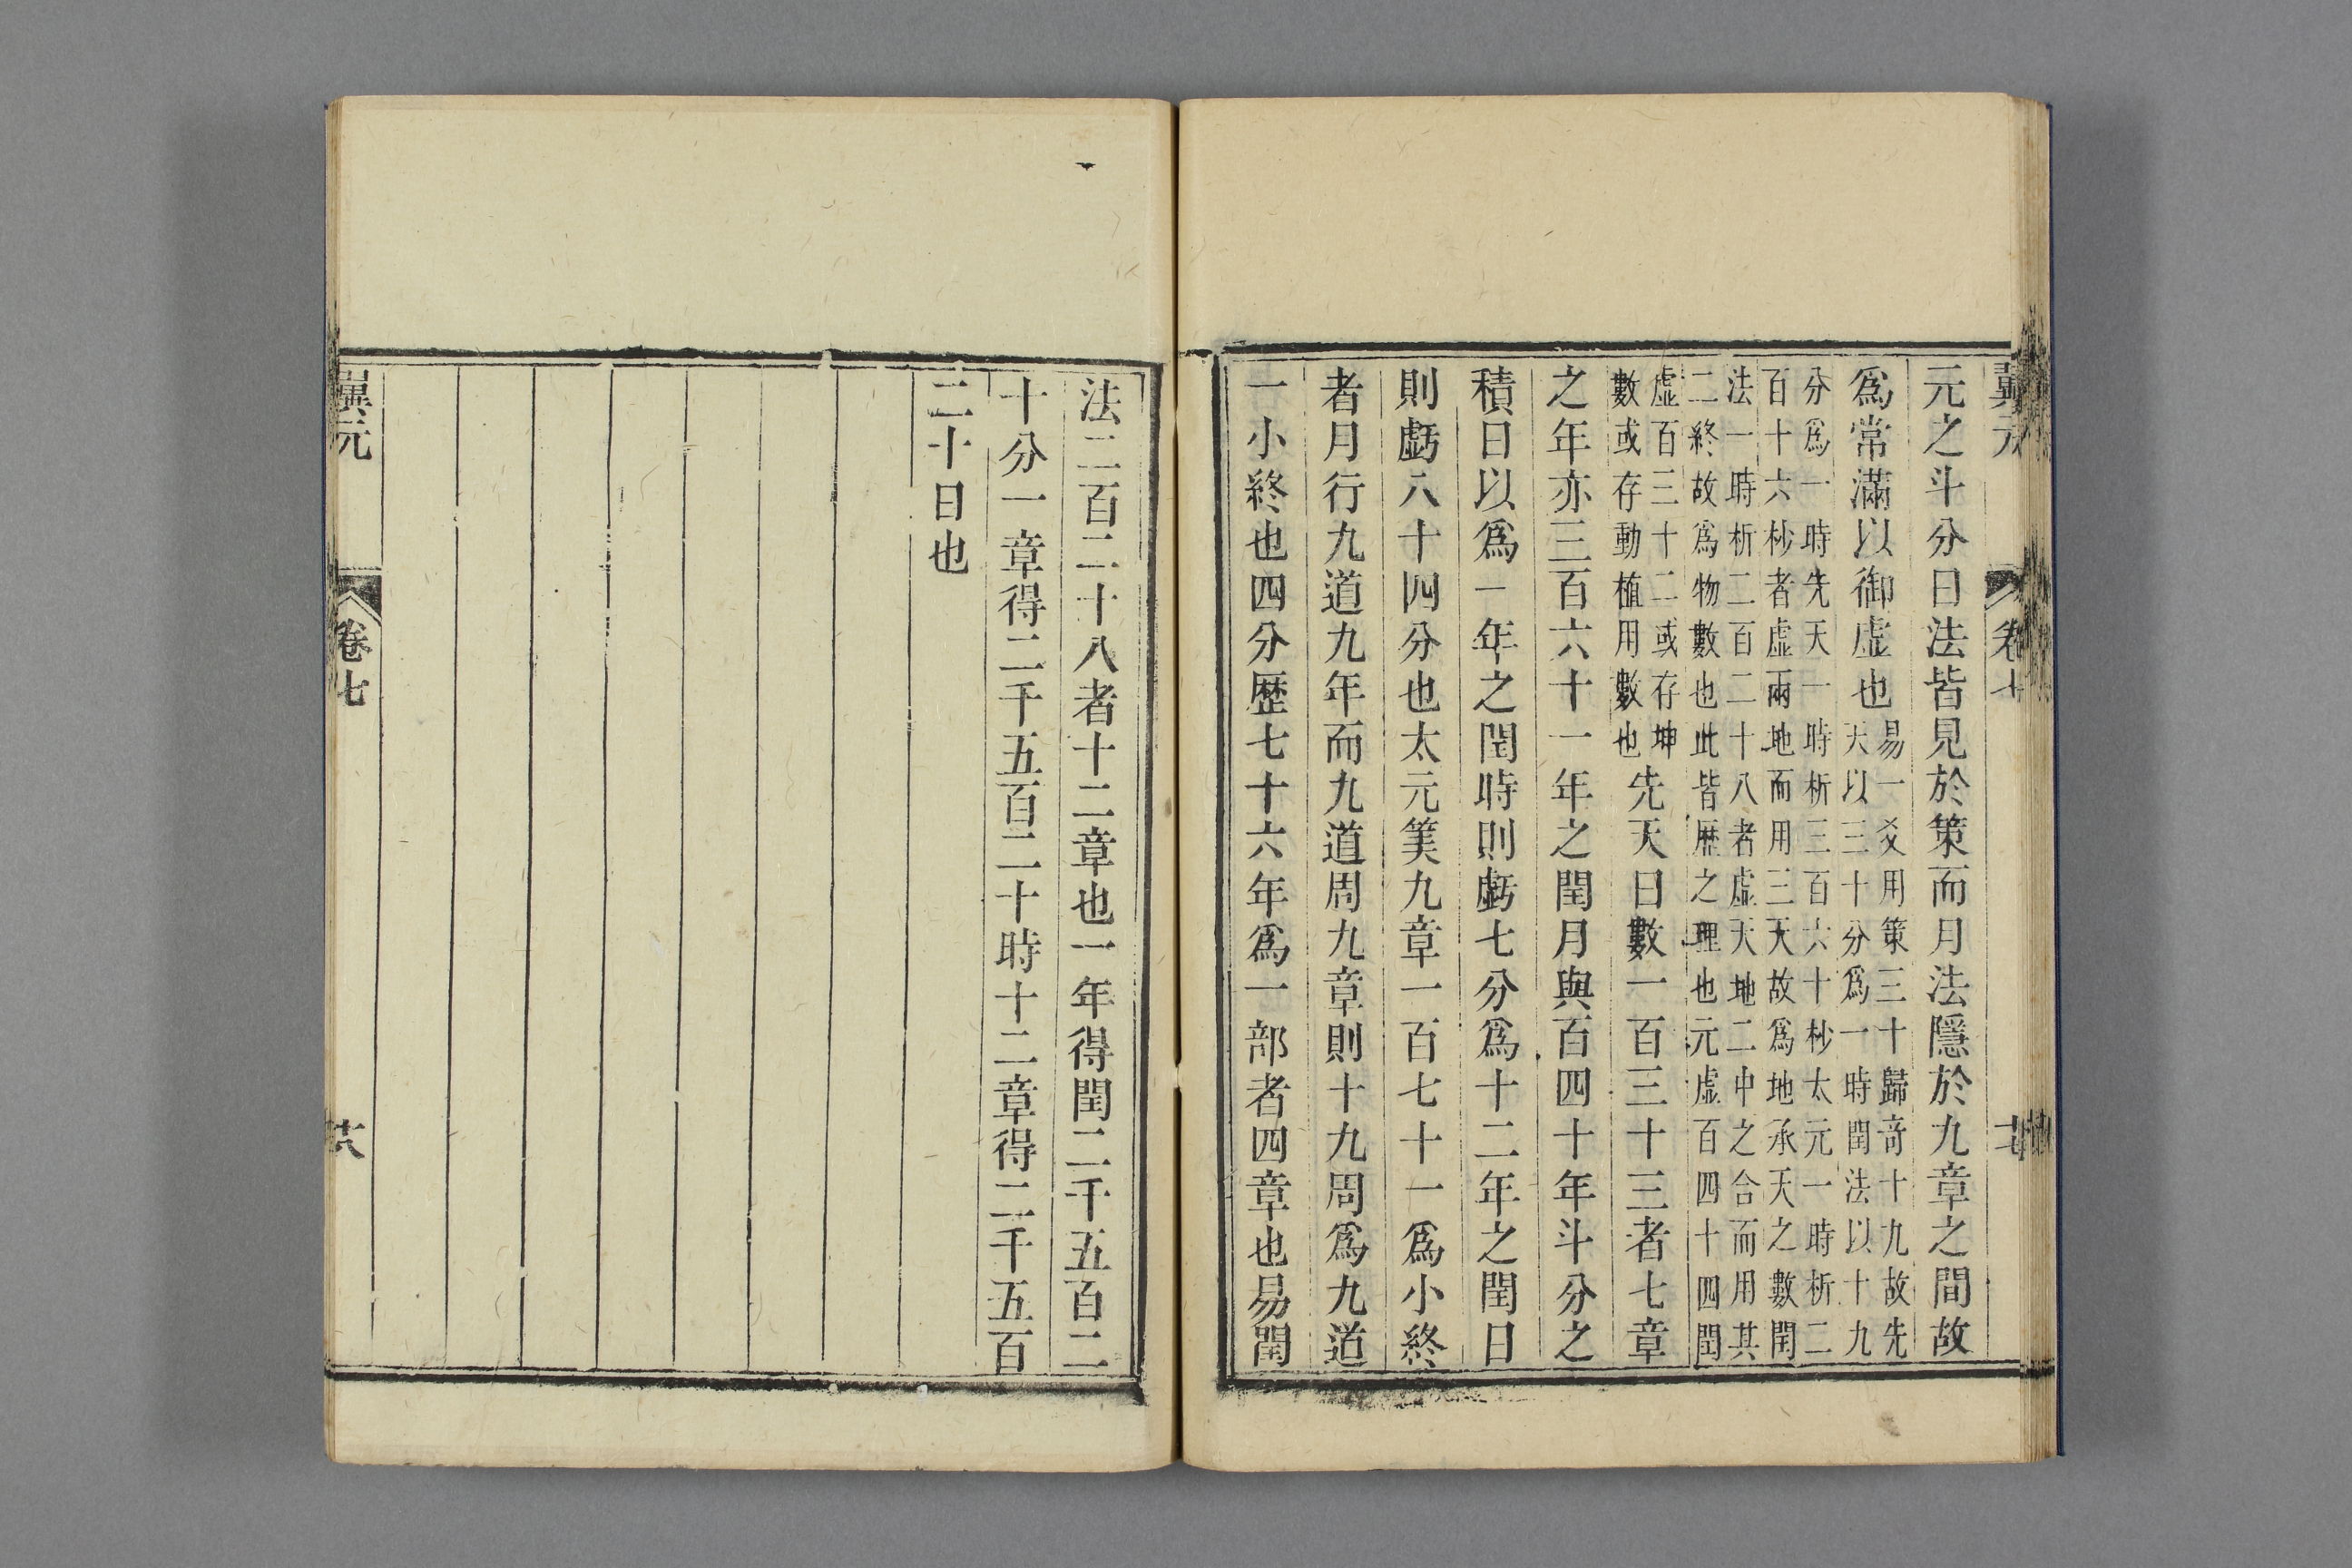 翼元 卷七
元之斗分日法皆見於策而月法隱於九章之間故
爲常滿以御虛也
易一爻用策三十歸奇十九故先
天以三十分爲一時閏法以十九
分爲一時先天一時析三百六十杪太元一時析二
百十六杪者虛兩地而用三天故爲地承天之數閏
法一時析二百二十八者虛天地二中之合而用其
二終故爲物數也此皆歷之理也元虛百四十四閏
虛百三十二或存坤
數或存動植用數也
先天日數一百三十三者七章
之年亦三百六十一年之閏月與百四十年斗分之
積日以爲一年之閏時則虧七分爲十二年之閏日
則虧八十四分也太元筭九章一百七十一爲小終
者月行九道九年而九道周九章則十九周爲九道
一小終也四分歷七十六年爲一部者四章也易閏
法二百二十八者十二章也一年得閏二千五百二
十分一章得二千五百二十時十二章得二千五百
二十日也
翼元 卷七 十八